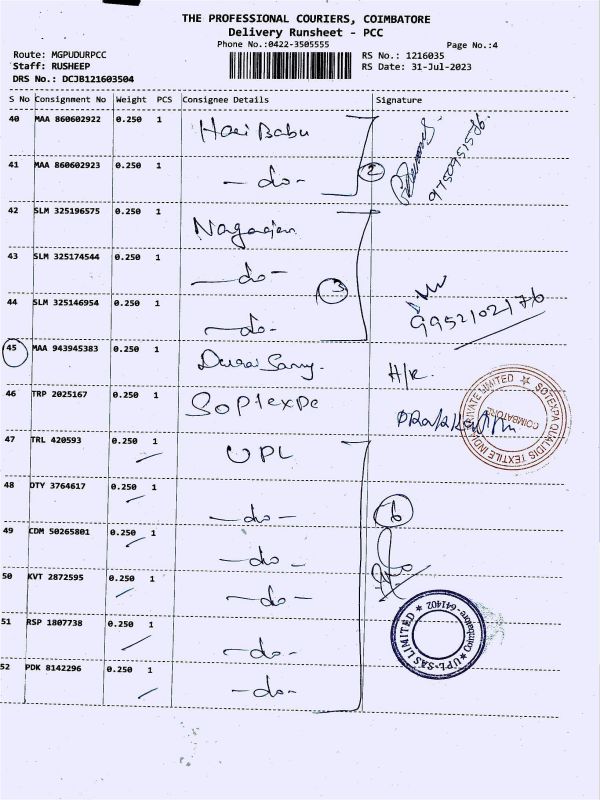 THE PROFESSIONAL COURIERS, COIMBATORE
Delivery Runsheet - PCC
Phone No.:0422-3505555 Page No.:4
Route: MGPUDURPCC RS No.: 1216035
Staff: RUSHEEP RS Date: 31-Jul-2023
DRS No.: DCJB121603504
S No Consignment No Weight PCS Consignee Details Signature
40 MAA 860602922 0.250 1 Hari Babu
41 MAA 860602923 0.250 1 -do- 2
42 SLM 325196575 0.250 1 Nagarajan
43 SLM 325174544 0.250 1 -do- 3
44 SLM 325146954 0.250 1 -do- 9952102176
45 MAA 943945383 0.250 1 Durai Samy. H/R.
46 TRP 2025167 0.250 1 Soptexpa
SOTEXPA QUALIDIS TEXTILE INDIA PRIVATE LIMITED ★ COIMBATORE
47 TRL 420593 0.250 1 UPL
48 DTY 3764617 0.250 1 -do- 6
49 CDM 50265801 0.250 1 -do-
50 KVT 2872595 0.250 1 -do-
51 RSP 1807738 0.250 1 -do-
UPL-SAS LIMITED ★ Coimbatore-641402 ★
52 PDK 8142296 0.250 1 -do-